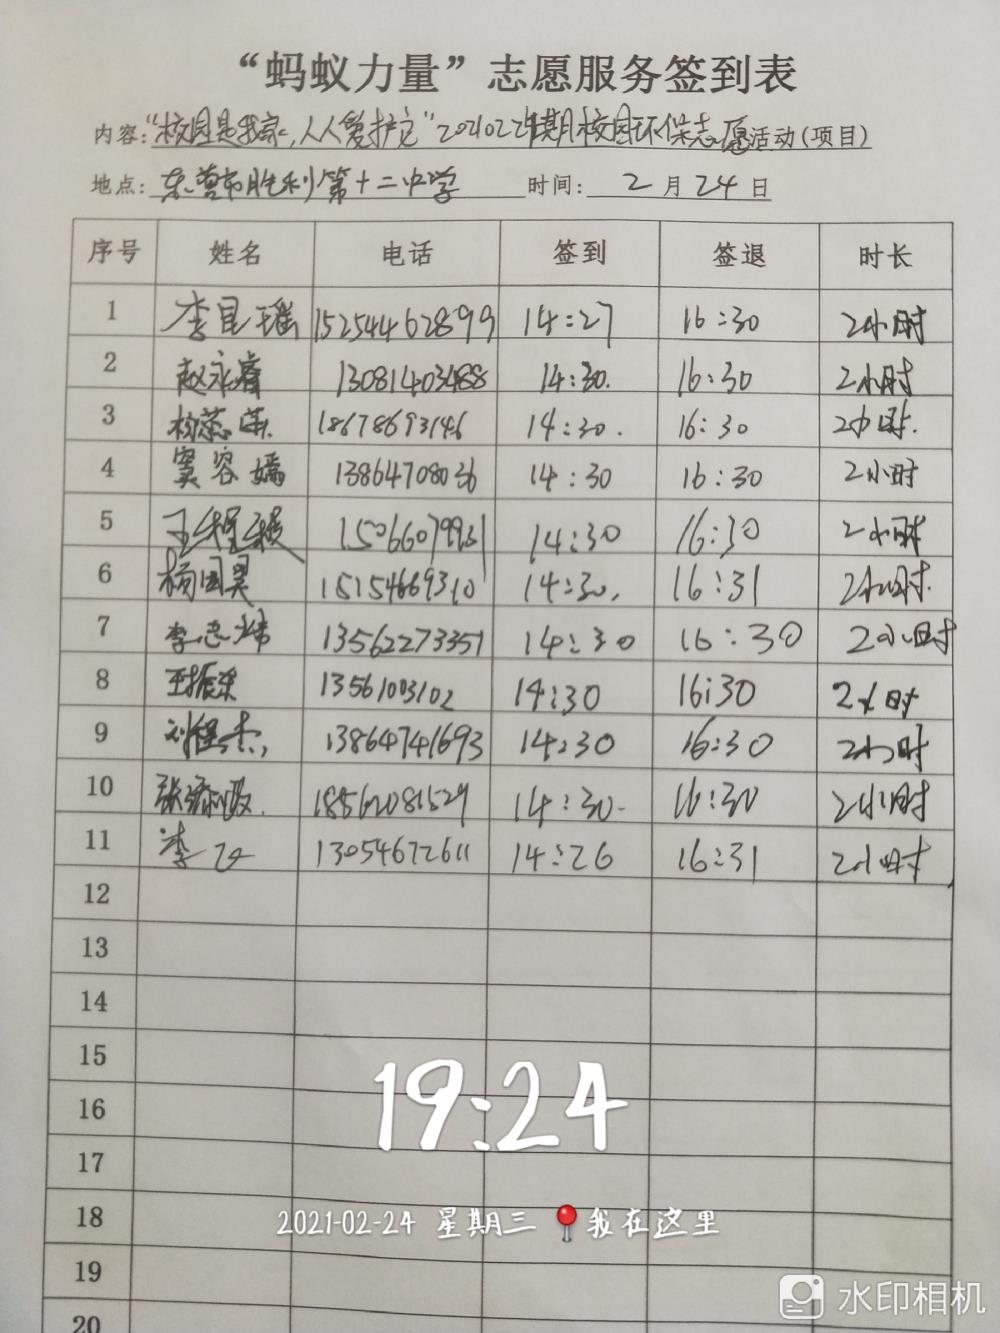 “蚂蚁力量”志愿服务签到表
内容：“校园是我家，人人爱护它”20210224期校园环保志愿活动（项目）
地点：东营市胜利第十二中学 时间：2月24日
序号 姓名 电话 签到 签退 时长
1 李昆瑶 15254462899 14:27 16:30 2小时
2 赵永睿 13081403488 14:30. 16:30 2小时
3 杨蕊莲 18678693146 14:30. 16:30 2小时.
4 窦容嫣 13864708036 14:30 16:30 2小时
5 王程 15066079931 14:30 16:30 2小时
6 杨国昊 15154669310 14:30. 16:31 2小时.
7 李志 13562273351 14:30 16:30 2小时
8 王振荣 13561003102 14:30 16:30 2小时
9 刘 杰 13864741693 14:30 16:30 2小时
10 张 18562081529 14:30. 16:30 2小时
11 李 13054672611 14:26 16:31 2小时.
12
13
14
15
16
17
18
19
20
19:24
2021-02-24 星期三 我在这里
水印相机